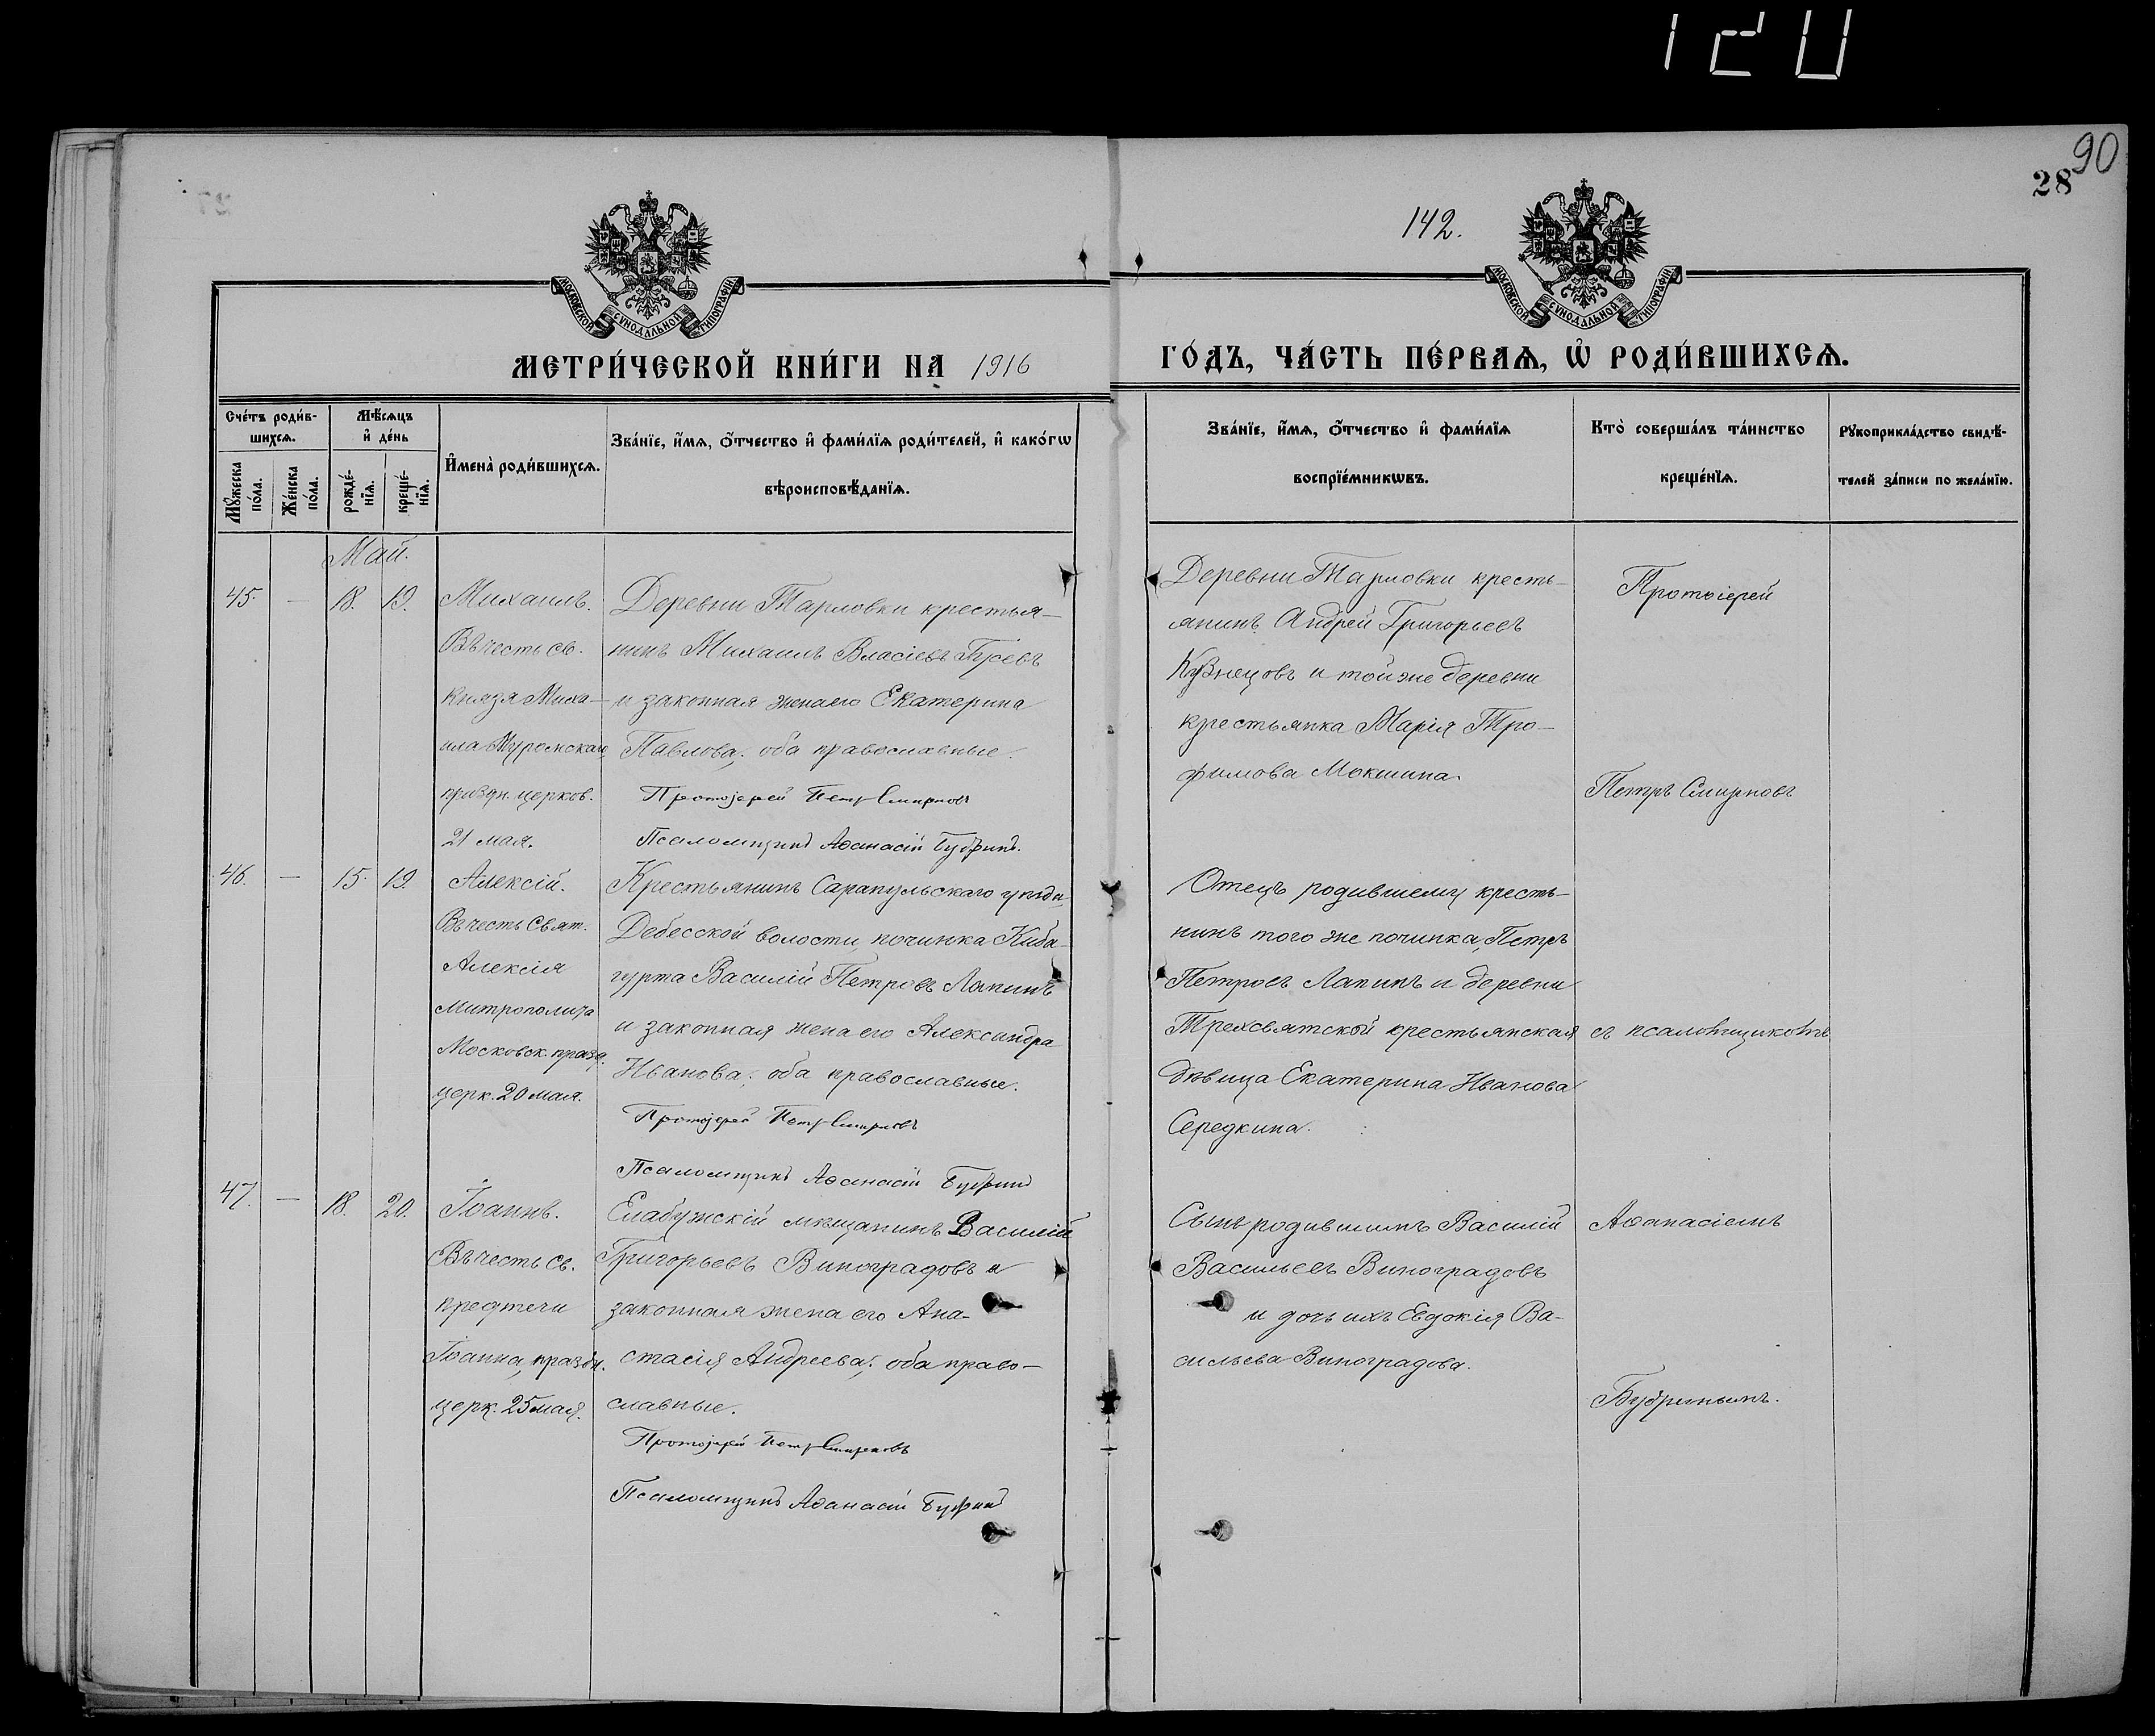 90
28
142.
МОСКОВСКОЙ СѴНОДАЛЬНОЙ ТИПОГРАФІИ
МОСКОВСКОЙ СѴНОДАЛЬНОЙ ТИПОГРАФІИ
МЕТРИ́ЧЕСКОЙ КНИ́ГИ НА 1916
ГО́ДЪ, ЧА́СТЬ ПЕ́РВАѦ, Ѡ҆ РОДИ́ВШИХСѦ.
Сче́тъ роди́в-
шихсѧ.
Мꙋ́жеска по́ла.
Же́нска по́ла.
Мѣ́сѧцъ
и҆ де́нь
рожде́-
нїѧ.
креще́-
нїѧ.
И҆мена̀ роди́вшихсѧ.
Зва́нїе, и҆́мѧ, ѻ҆́тчество и҆ фами́лїѧ роди́телей, и҆ како́гѡ
вѣроисповѣ́данїѧ.
Зва́нїе, и҆́мѧ, ѻ҆́тчество и҆ фами́лїѧ
воспрїе́мникѡвъ.
Кто̀ соверша́лъ та́инство
креще́нїѧ.
Рꙋкоприкла́дство свидѣ́-
телей за́писи по жела́нїю.
Май.
45. — 18. 19.
Михаилъ.
Въ честь св.
князя Миха-
ила Муромскаго,
праздн. церков.
21 мая.
Деревни Тарловки крестья-
нинъ Михаилъ Власіевъ Гусевъ
и законная жена его Екатерина
Павлова; оба православные.
Протоіерей Петръ Смирновъ
Псаломщикъ Аѳанасій Бубринъ.
Деревни Тарловки кресть-
янинъ Андрей Григорьевъ
Кузнецовъ и той же деревни
крестьянка Марія Тро-
фимова Мокшина.
Протоіерей
Петръ Смирновъ
46. — 15. 19.
Алексій.
Въ честь Свят.
Алексія
Митрополита
Московск. празд.
церк. 20 мая.
Крестьянинъ Сарапульскаго уѣзда,
Дебесской волости, починка Киба-
гурта Василій Петровъ Лапинъ
и законная жена его Александра
Иванова; оба православные.
Протоіерей Петръ Смирновъ
Псаломщикъ Аѳанасій Бубринъ
Отецъ родившему кресть-
нинъ того же починка, Петръ
Петровъ Лапинъ и деревни
Трехсвятской крестьянская
дѣвица Екатерина Иванова
Середкина.
съ псаломщикомъ
47. — 18. 20.
Іоаннъ.
Въ честь Св.
предтечи
Іоанна, праздн.
церк. 25 мая.
Елабужскій мѣщанинъ Василій
Григорьевъ Виноградовъ и
законная жена его Ана-
стасія Андреева; оба право-
славные.
Протоіерей Петръ Смирновъ
Псаломщикъ Аѳанасій Бубринъ
Сынъ родившимъ Василій
Васильевъ Виноградовъ
и дочь ихъ Евдокія Ва-
сильева Виноградова.
Аѳанасіемъ
Бубринымъ.